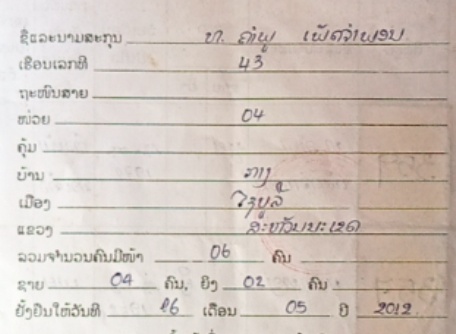 ຊື່ແລະນາມສະກຸນ ທ. ຄຳພູ ເພັດຈຳພອນ
ເຮືອນເລກທີ 43
ຖະໜົນສາຍ
ໜ່ວຍ 04
ຄຸ້ມ
ບ້ານ
ເມືອງ ໄຊບູລີ
ແຂວງ ສະຫວັນນະເຂດ
ລວມຈຳນວນຄົນມີໜ້າ 06 ຄົນ
ຊາຍ 04 ຄົນ, ຍິງ 02 ຄົນ
ຢັ້ງຢືນໃຫ້ວັນທີ 26 ເດືອນ 05 ປີ 2012